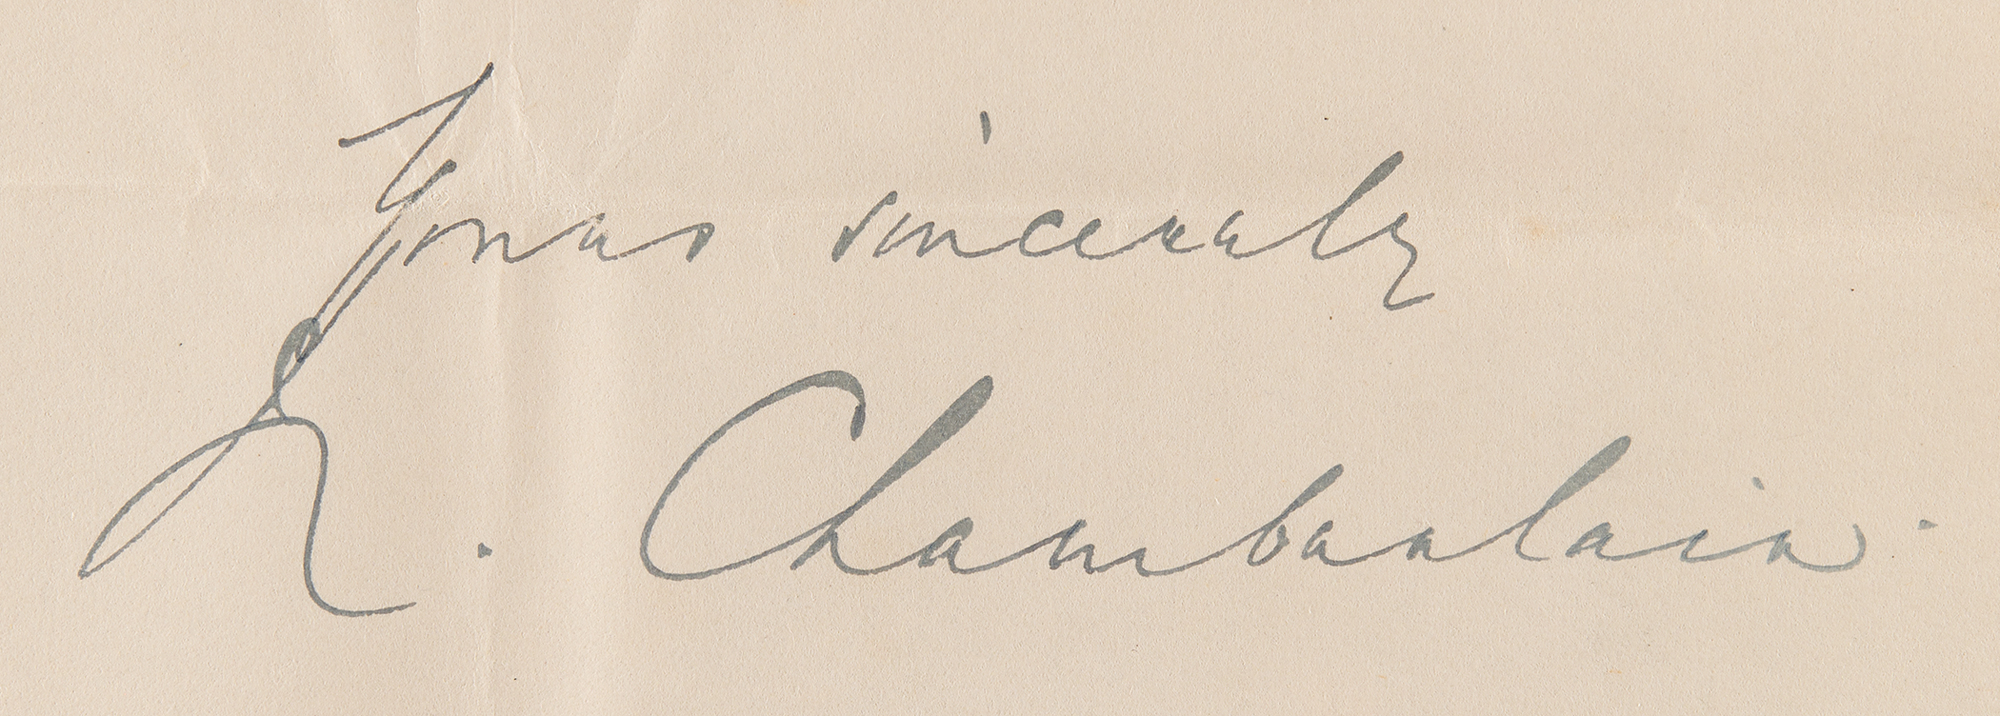 Yours sincerely
N. Chamberlain.